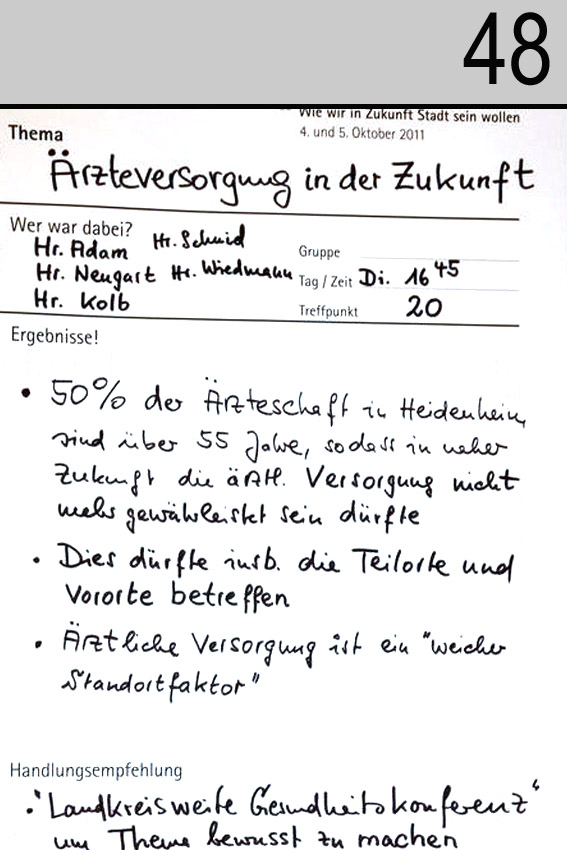 48
Wie wir in Zukunft Stadt sein wollen
Thema
4. und 5. Oktober 2011
Ärzteversorgung in der Zukunft
Wer war dabei?
Hr. Adam Hr. Schmid
Gruppe
Hr. Neugart Hr. Wiedmann
Tag / Zeit Di. 16 45
Hr. Kolb
Treffpunkt 20
Ergebnisse!
• 50% der Ärzteschaft in Heidenheim
sind über 55 Jahre, sodass in naher
Zukunft die ärztl. Versorgung nicht
mehr gewährleistet sein dürfte
• Dies dürfte insb. die Teilorte und
Vororte betreffen
• Ärztliche Versorgung ist ein "weicher
Standortfaktor"
Handlungsempfehlung
• "Landkreisweite Gesundheitskonferenz"
um Thema bewusst zu machen